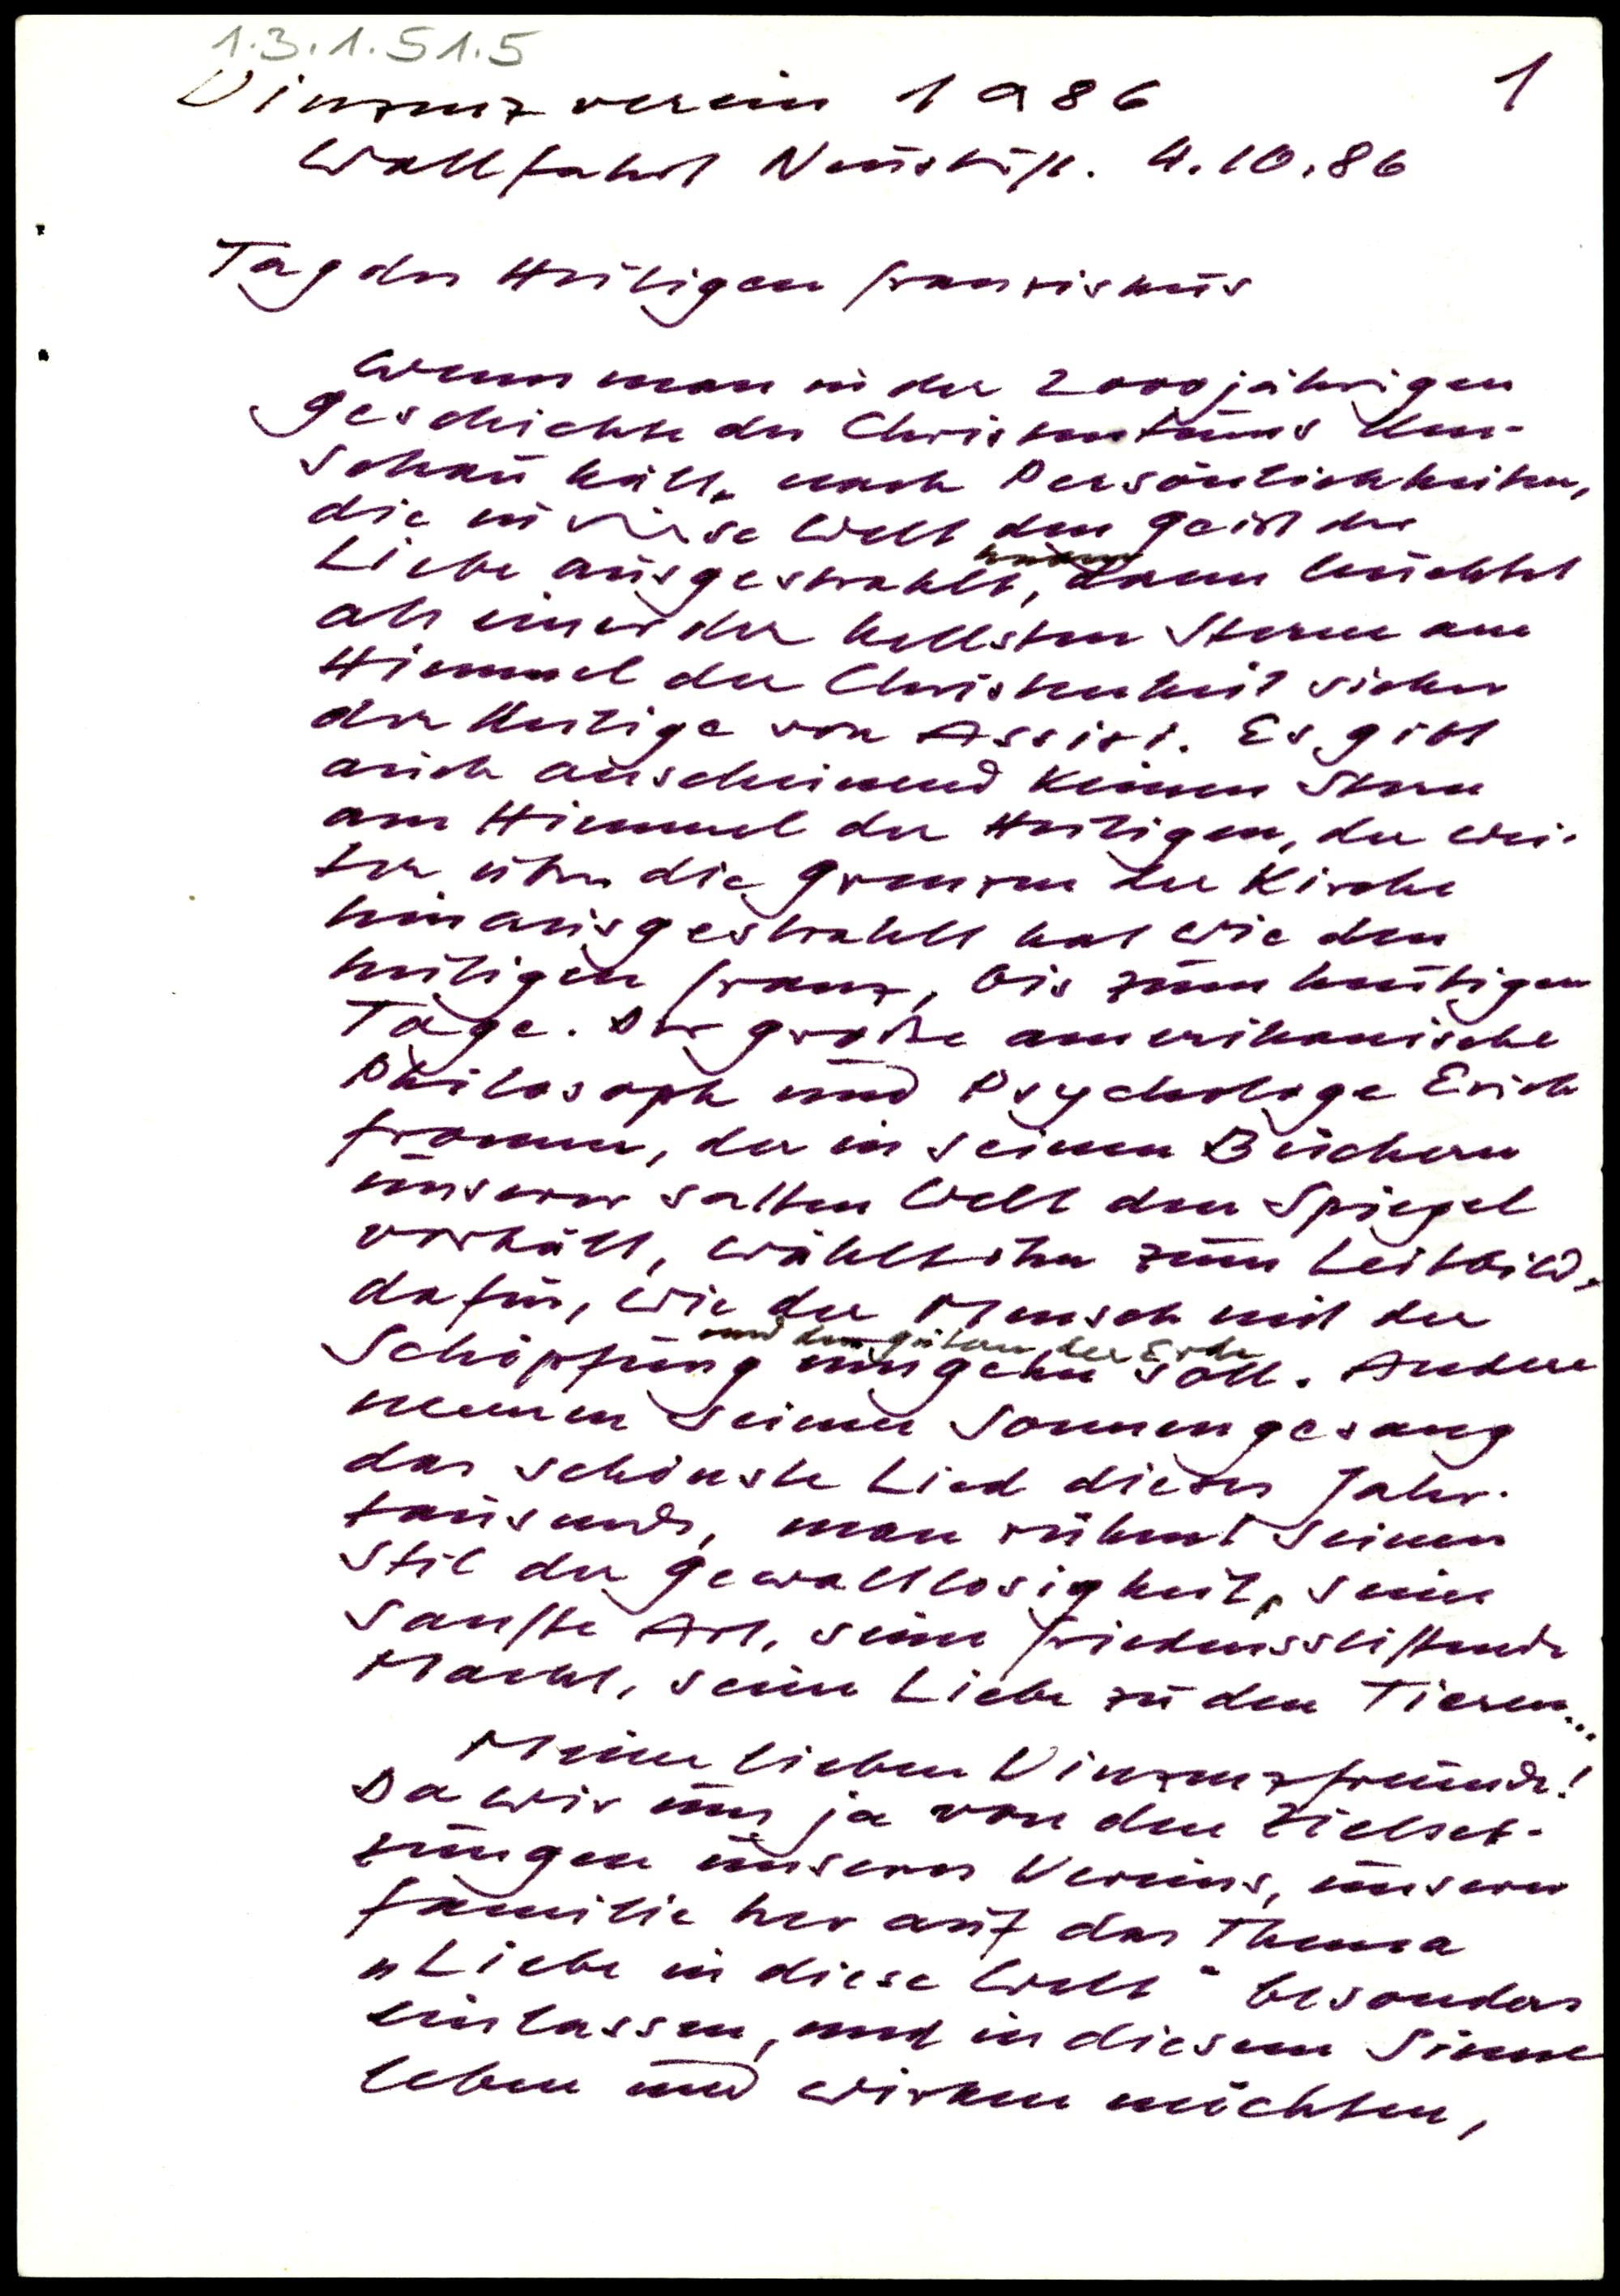 1.3.1.51.5
Vinzenzverein 1986 1
Wallfahrt Neustift. 4.10.86
Tag des Heiligen Franziskus
Wenn man in der 2000jährigen
Geschichte des Christentums Um-
schau hält, nach Persönlichkeiten,
die in diese Welt den Geist der
Liebe ausgestrahlt, dann leuchtet
als einer der hellsten Sterne am
Himmel der Christenheit sicher
der Heilige von Assisi. Es gibt
auch anscheinend keinen Stern
am Himmel der Heiligen, der wei-
ter über die Grenzen der Kirche
hinausgestrahlt hat wie den
heiligen Franz, bis zum heutigen
Tage. Der große amerikanische
Philosoph und Psychologe Erich
Fromm, der in seinen Büchern
unserer satten Welt den Spiegel
vorhält, wählt ihn zum Leitbild
dafür, wie der Mensch mit der
und den Gütern der Erde
Schöpfung umgehn soll. Andere
nennen seinen Sonnengesang
das schönste Lied dieses Jahr-
tausends, man rühmt seinen
Stil der Gewaltlosigkeit, seine
sanfte Art, seine friedensstiftende
Macht, seine Liebe zu den Tieren...
Meine lieben Vinzenzfreunde!
Da wir uns ja von den Zielset-
zungen unseres Vereins, unserer
Familie her auf das Thema
„Liebe in diese Welt" besonders
einlassen, und in diesem Sinne
leben und wirken möchten,